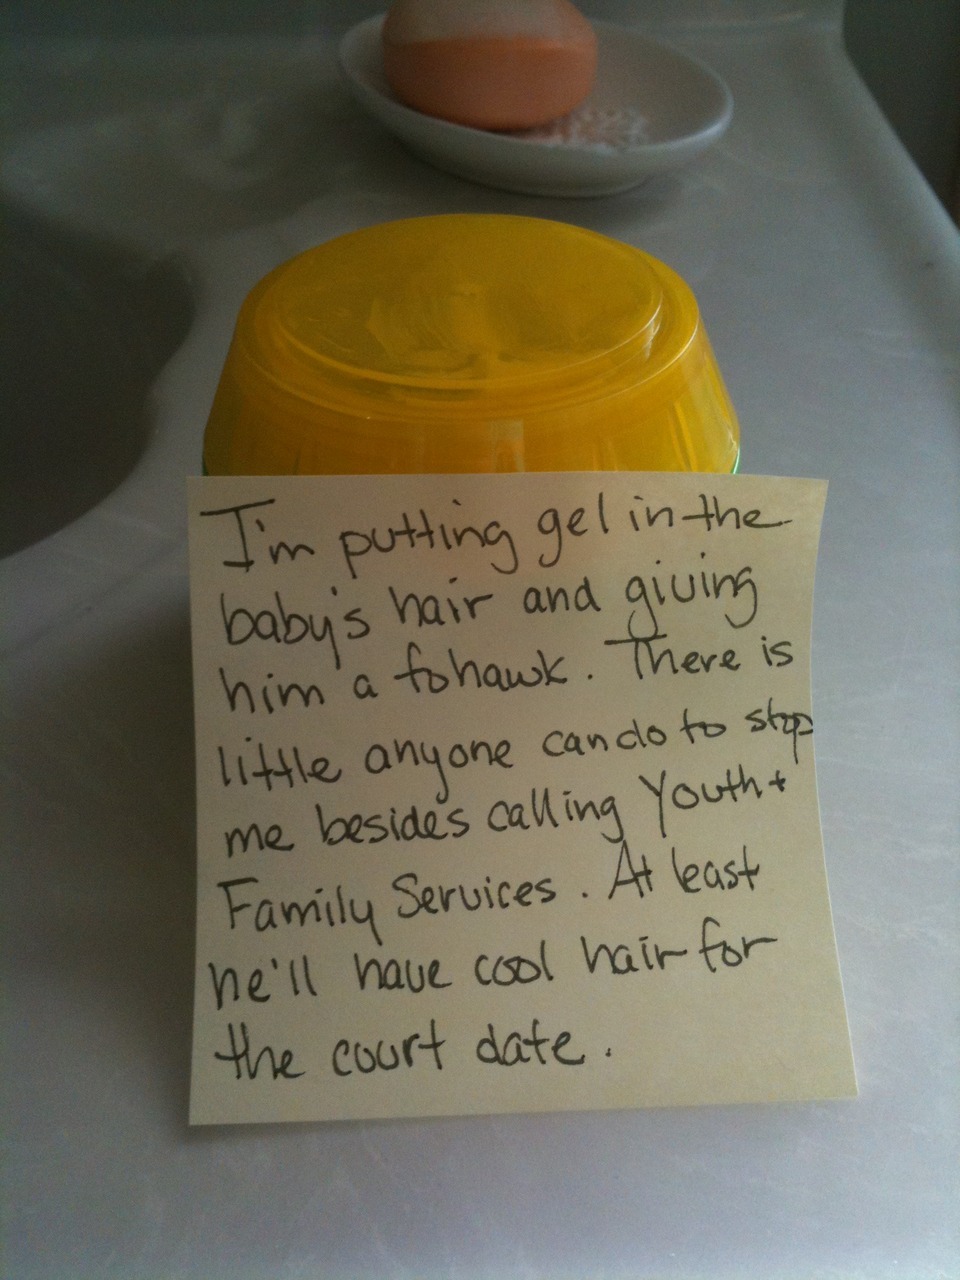 I'm putting gel in the
baby's hair and giving
him a fohawk. There is
little anyone can do to stop
me besides calling Youth +
Family Services. At least
he'll have cool hair for
the court date.